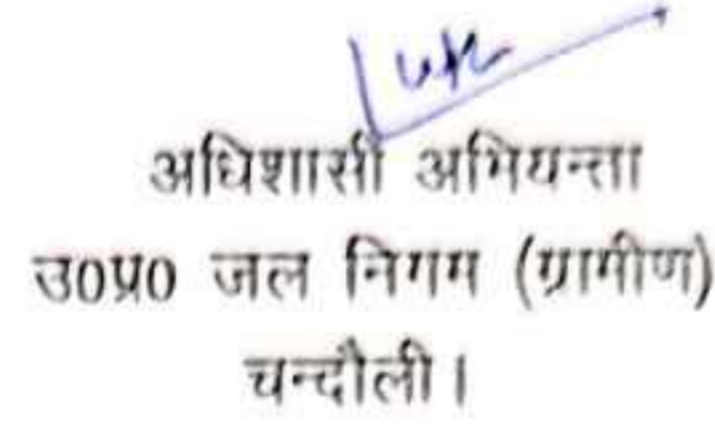 अधिशासी अभियन्ता
उ0प्र0 जल निगम (ग्रामीण)
चन्दौली।